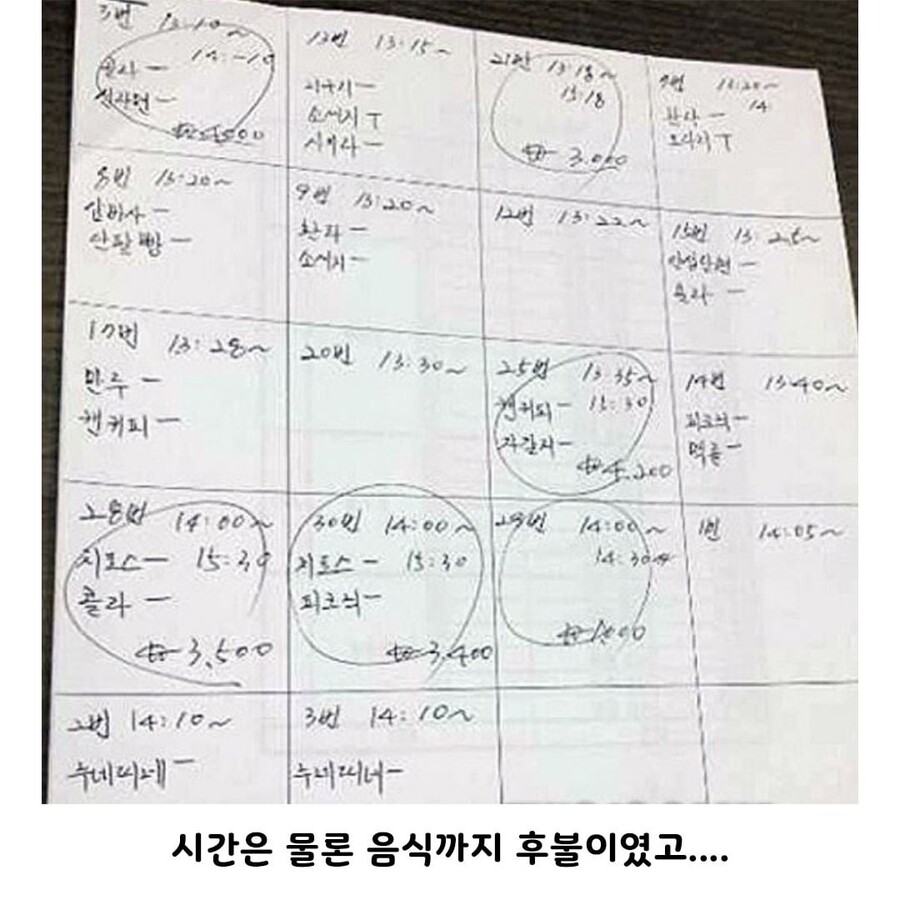 3번 13:10~
콜라ㅡ 14:10
13번 13:15~
소세지 T
21번 13:18~
13:18
₩ 3,000
13:20~
14:
8번 13:20~
단팥빵ㅡ
9번 13:20~
소세지ㅡ
12번 13:22~
15번 13:25~
콜라ㅡ
17번 13:28~
만두ㅡ
캔커피ㅡ
20번 13:30~
25번 13:35~
캔커피ㅡ 15:30
자갈치ㅡ
₩ 4,200
14번 13:40~
피크닉ㅡ
맥콜ㅡ
28번 14:00~
치토스ㅡ 15:30
콜라ㅡ
₩ 3,500
30번 14:00~
치토스ㅡ 15:30
피크닉ㅡ
₩ 3,400
29번 14:00~
14:30
₩ 1,000
1번 14:05~
2번 14:10~
누네띠네ㅡ
3번 14:10~
누네띠네ㅡ
시간은 물론 음식까지 후불이였고....